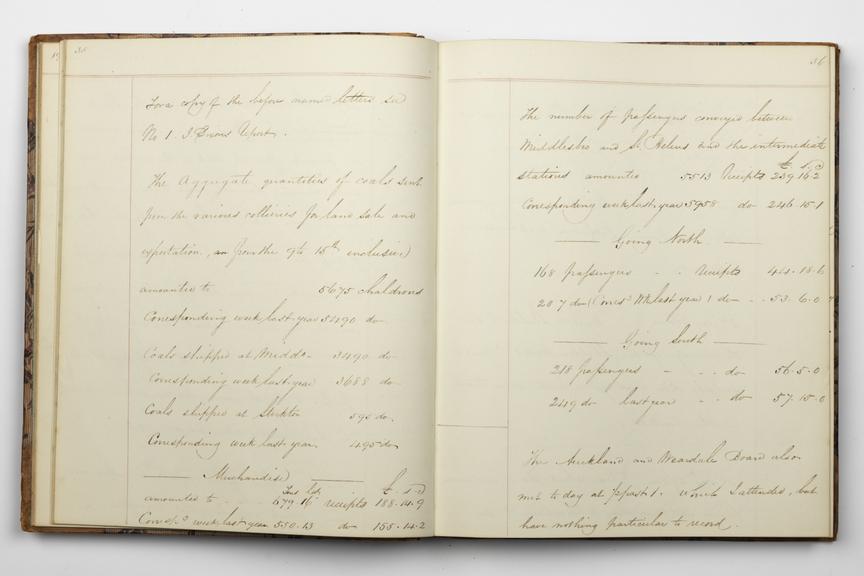 35
For a copy of the before named letters see
No 1. Report.
The Aggregate quantities of coals sent
from the various collieries for land sale and
exportation, from the 9th to 15th inclusive
amounted to 5675 chaldrons
Corresponding week last year 5490 do
Coals shipped at Middo 3490 do
Corresponding week last year 3688 do
Coals shipped at Stockton 595 do.
Corresponding week last year. 495 do
Merchandise
Tons £ s d
amounted to 679.16 receipts 188.14.9
Corresp.g week last year 550.13 do 155.14.2
36
The number of passengers conveyed between
Middlesbro and St Helens and the intermediate
£ s d
stations amounted 5513 Receipts 239 16 2
Corresponding week last year 5958 do 246 15 1
Going North
168 passengers - - receipts 44.18.6
207 do ( Wk last year ) do - - 53.6.0
Going South
218 passengers - - - do 56.5.0
249 do last year - - do 57.15.0
The Auckland and Weardale Board also
met to day at ½ past 1. which I attended, but
have nothing particular to record.